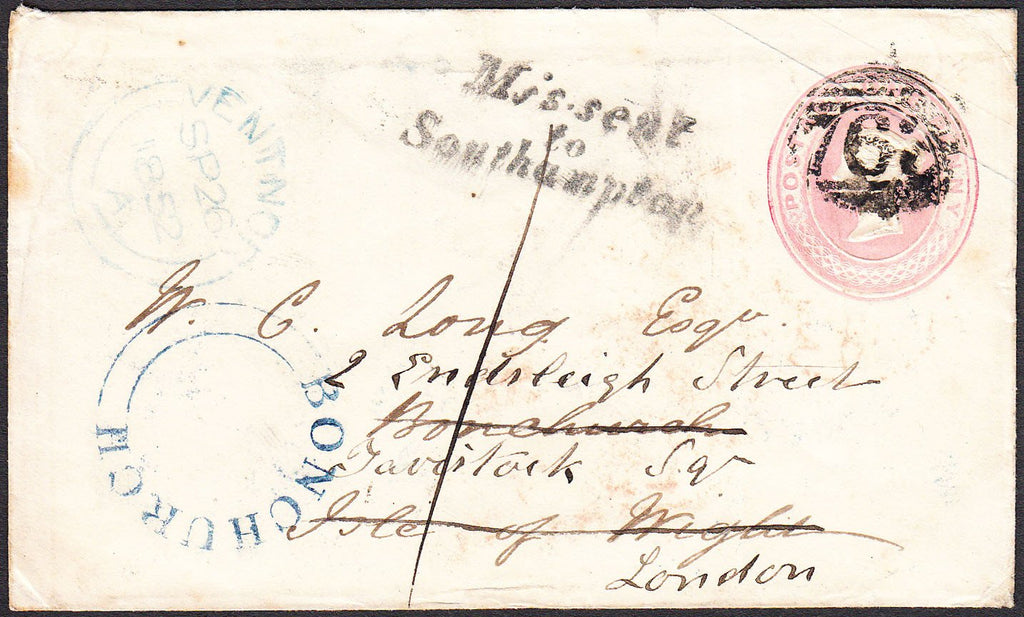 Mis-sent
to
Southampton
VENTNOR
SP 26
1852
A
POSTAGE ONE PENNY
W. C. Long Esqr.
2 Endsleigh Street
Bonchurch
Tavistock Sqr
Isle of Wight
London
BONCHURCH